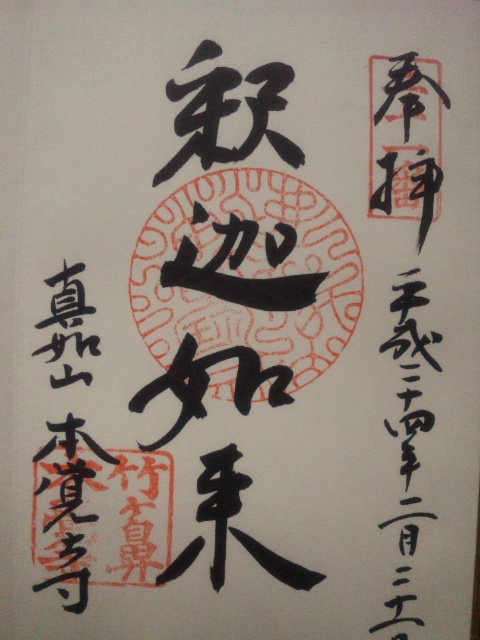 奉拝
平成二十四年二月二十一日
釈迦如来
真如山 本覚寺
竹ヶ鼻